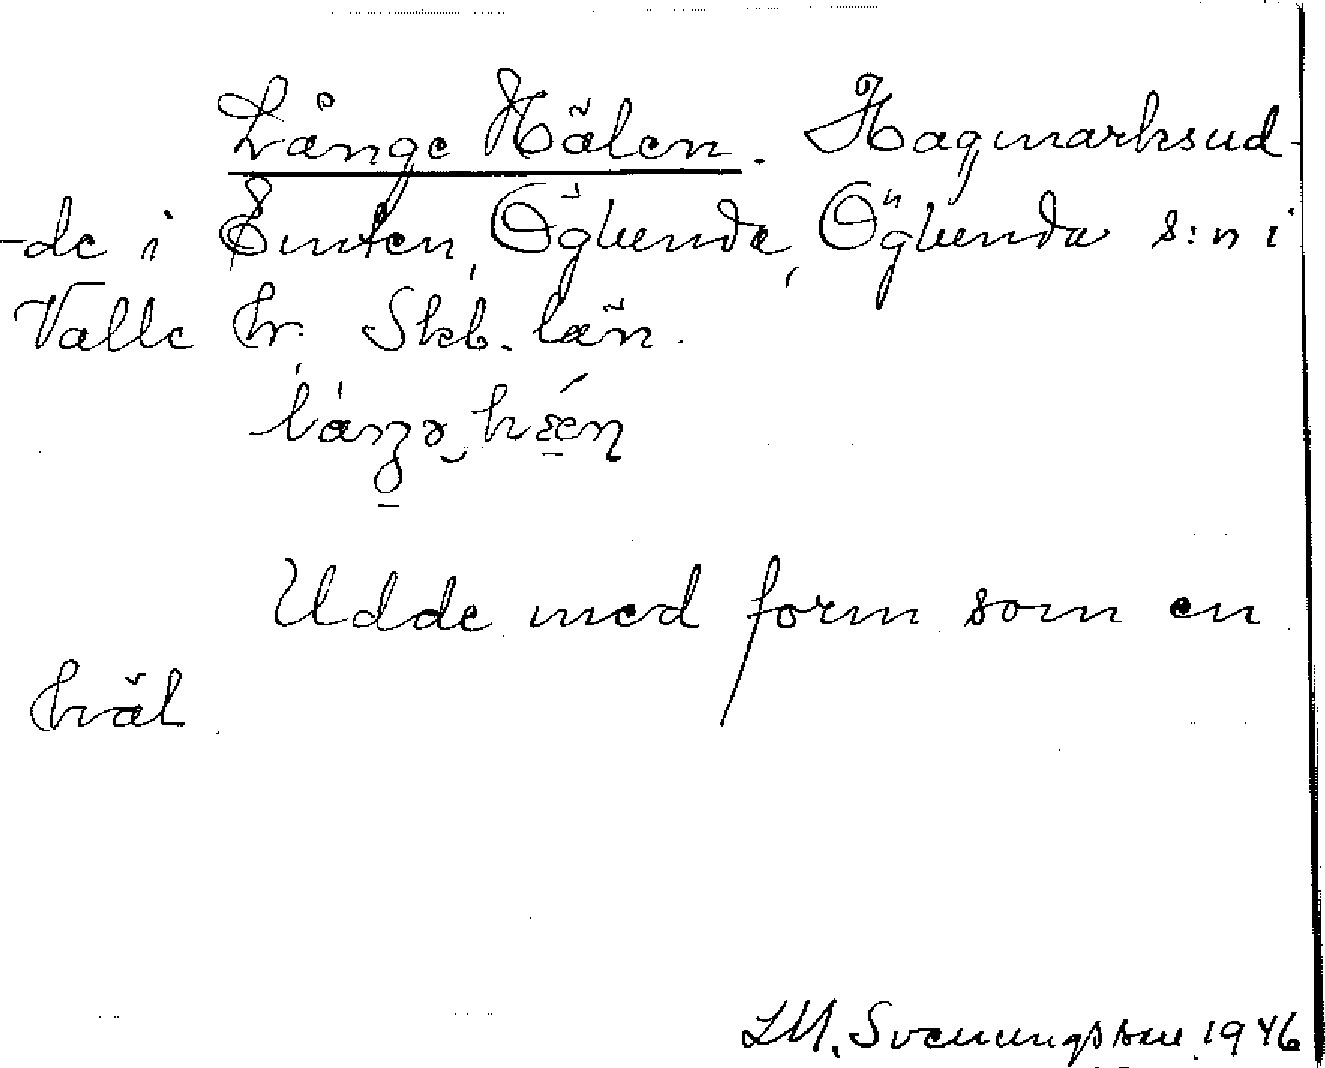 Långe Hälen. Hagmarksud-
-de i Emten, Öglunda, Öglunda s:n i
Valle hr. Skb. län.
Udde med form som en
häl
LM. Svenungsson 1946